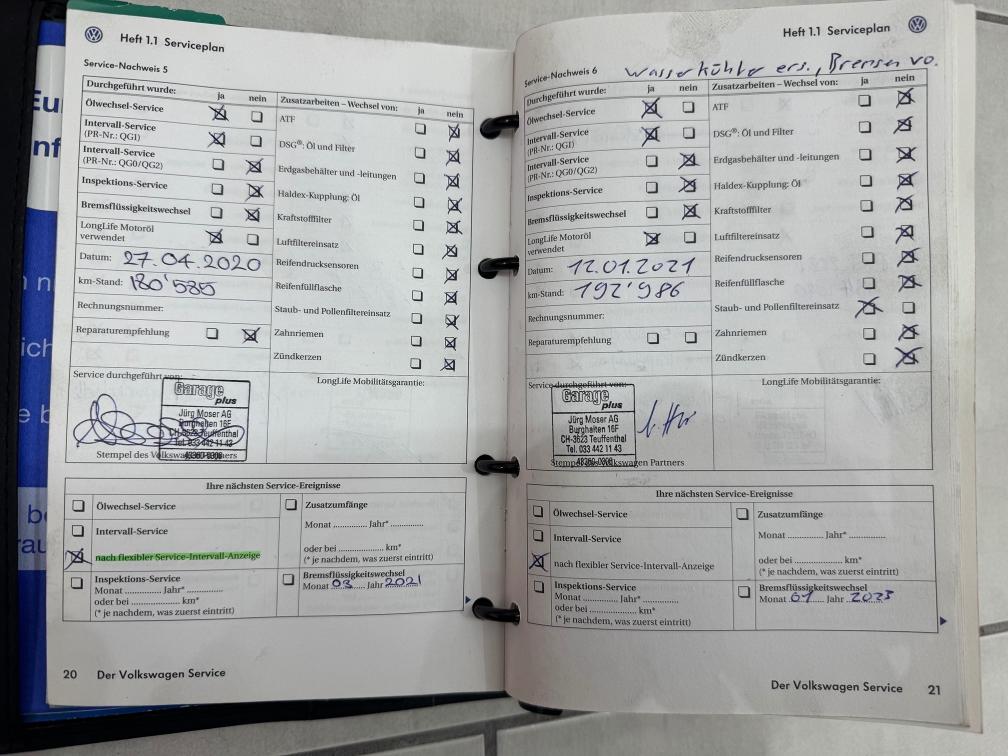 Heft 1.1 Serviceplan
Service-Nachweis 5
Durchgeführt wurde: ja nein
Ölwechsel-Service
Intervall-Service
(PR-Nr.: QG1)
Intervall-Service
(PR-Nr.: QG0/QG2)
Inspektions-Service
Bremsflüssigkeitswechsel
LongLife Motoröl
verwendet
Datum: 27.04.2020
km-Stand: 180'585
Rechnungsnummer:
Reparaturempfehlung
Zusatzarbeiten – Wechsel von: ja nein
ATF
DSG®: Öl und Filter
Erdgasbehälter und -leitungen
Haldex-Kupplung: Öl
Kraftstofffilter
Luftfiltereinsatz
Reifendrucksensoren
Reifenfüllflasche
Staub- und Pollenfiltereinsatz
Zahnriemen
Zündkerzen
Service durchgeführt von:
Garage
plus
Jürg Moser AG
Burghalten 16F
CH-3623 Teuffenthal
Tel. 033 442 11 43
Stempel des Volkswagen Partners
LongLife Mobilitätsgarantie:
Ihre nächsten Service-Ereignisse
Ölwechsel-Service
Intervall-Service
nach flexibler Service-Intervall-Anzeige
Inspektions-Service
Monat .............. Jahr* ..............
oder bei .................... km*
(* je nachdem, was zuerst eintritt)
Zusatzumfänge
Monat .............. Jahr* ..............
oder bei .................... km*
(* je nachdem, was zuerst eintritt)
Bremsflüssigkeitswechsel
Monat 03 Jahr 2021
20 Der Volkswagen Service
Heft 1.1 Serviceplan
Service-Nachweis 6 Wasserkühler ers., Bremsen vo.
Durchgeführt wurde: ja nein
Ölwechsel-Service
Intervall-Service
(PR-Nr.: QG1)
Intervall-Service
(PR-Nr.: QG0/QG2)
Inspektions-Service
Bremsflüssigkeitswechsel
LongLife Motoröl
verwendet
Datum: 12.01.2021
km-Stand: 192'986
Rechnungsnummer:
Reparaturempfehlung
Zusatzarbeiten – Wechsel von: ja nein
ATF
DSG®: Öl und Filter
Erdgasbehälter und -leitungen
Haldex-Kupplung: Öl
Kraftstofffilter
Luftfiltereinsatz
Reifendrucksensoren
Reifenfüllflasche
Staub- und Pollenfiltereinsatz
Zahnriemen
Zündkerzen
Service durchgeführt von:
Garage
plus
Jürg Moser AG
Burghalten 16F
CH-3623 Teuffenthal
Tel. 033 442 11 43
Stempel des Volkswagen Partners
LongLife Mobilitätsgarantie:
Ihre nächsten Service-Ereignisse
Ölwechsel-Service
Intervall-Service
nach flexibler Service-Intervall-Anzeige
Inspektions-Service
Monat .............. Jahr* ..............
oder bei .................... km*
(* je nachdem, was zuerst eintritt)
Zusatzumfänge
Monat .............. Jahr* ..............
oder bei .................... km*
(* je nachdem, was zuerst eintritt)
Bremsflüssigkeitswechsel
Monat 01 Jahr 2023
Der Volkswagen Service 21